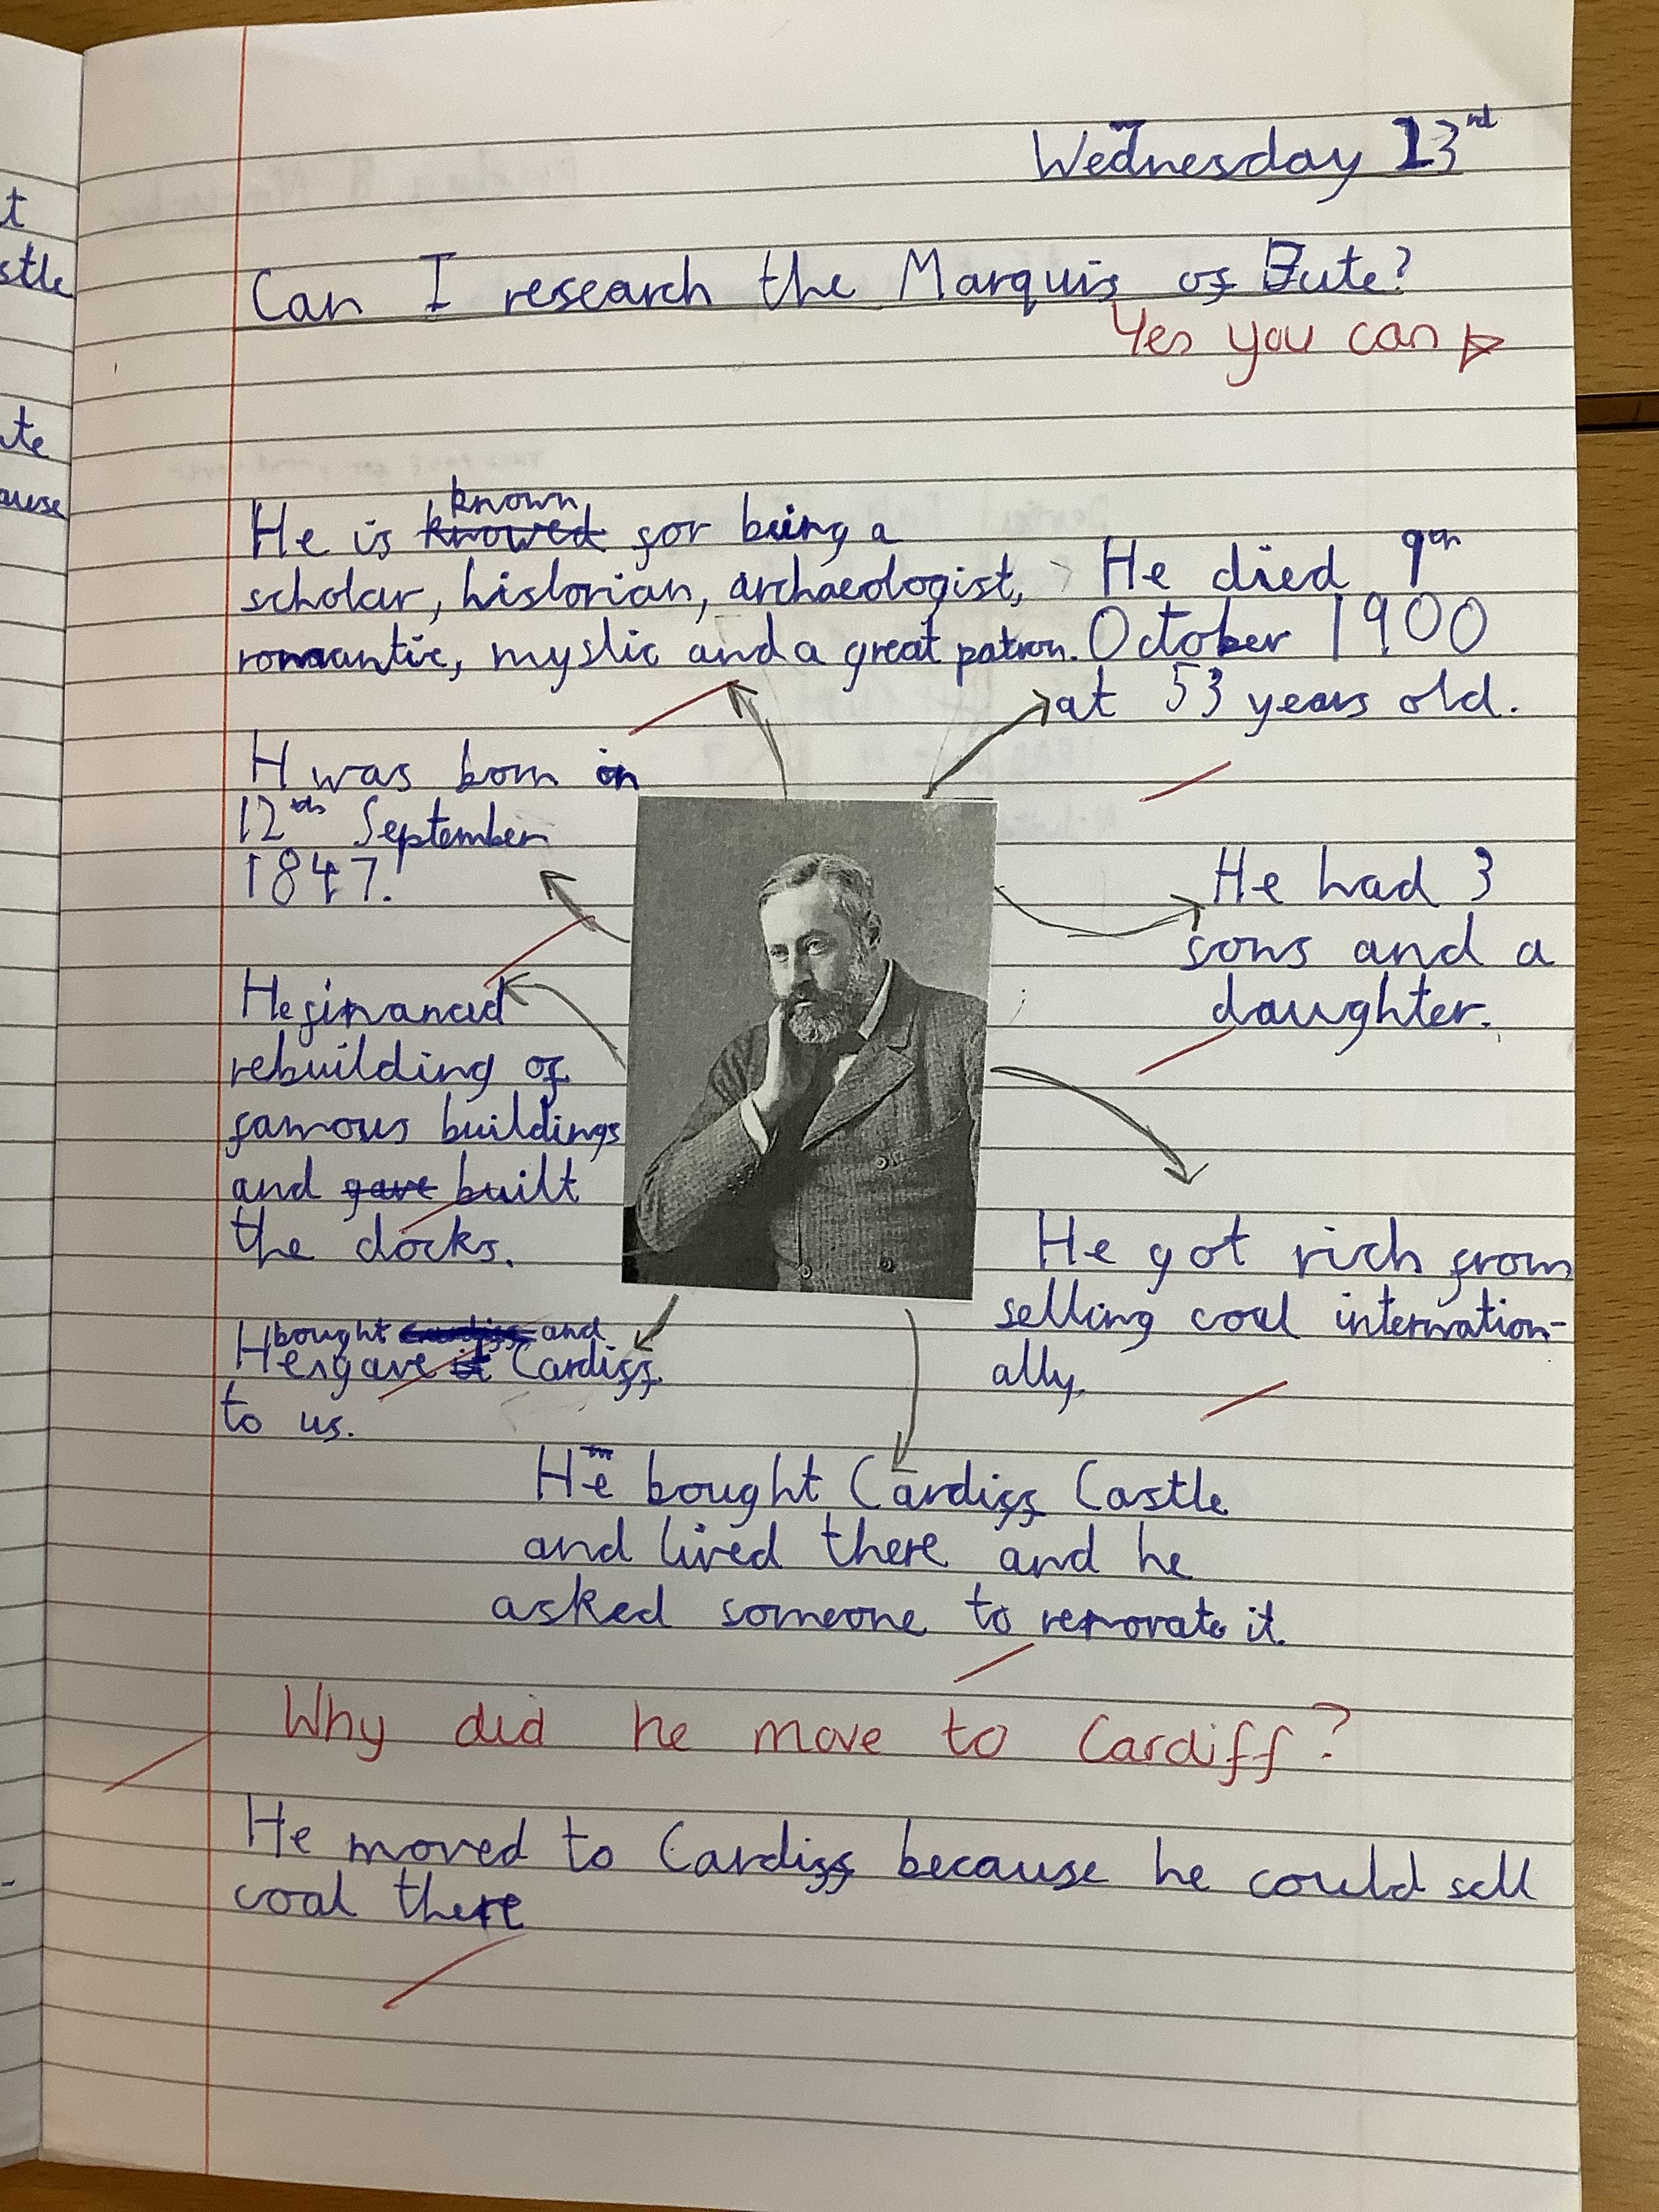 Wednesday 13rd
Can I research the Marquis of Bute?
Yes you can
He is knowed known for being a
scholar, historian, archaeologist,
romantic, mystic and a great patron.
He died 9th
October 1900
at 53 years old.
H was born on
12th September
1847.
He had 3
sons and a
daughter.
He financed
rebuilding of
famous buildings
and gave built
the docks.
He got rich from
selling coal internation-
ally.
bought Cardiff and
He gave it Cardiff
to us.
He bought Cardiff Castle
and lived there and he
asked someone to renovate it.
Why did he move to Cardiff?
He moved to Cardiff because he could sell
coal there
t
stle
te
ause